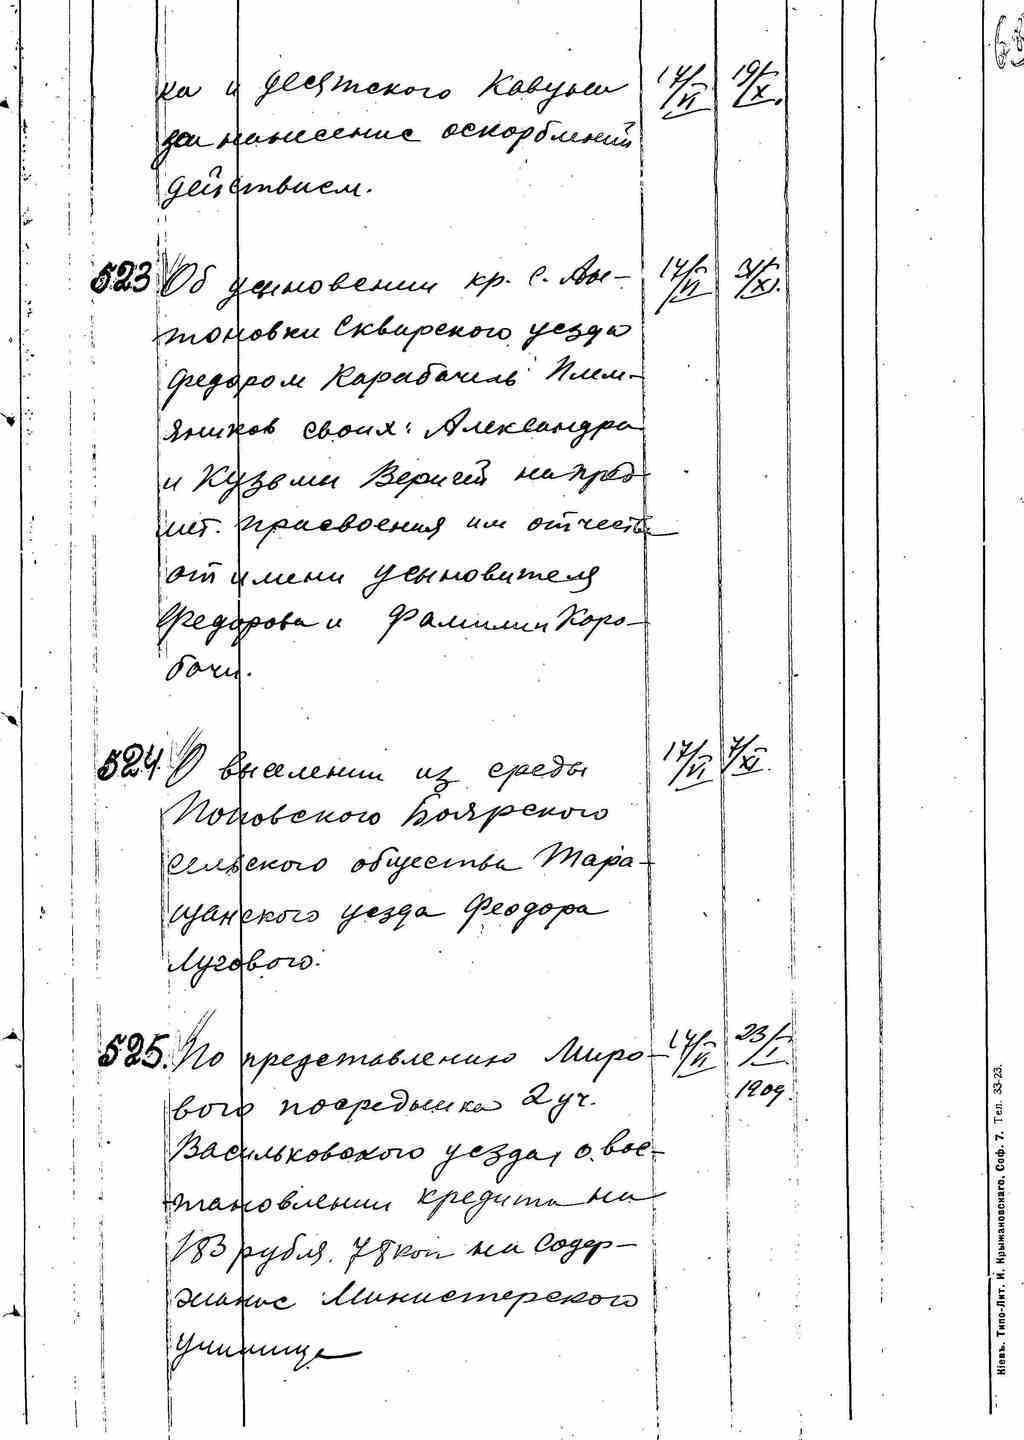 ка и десятского Кавуна 17/VI 19/X.
за нанесение оскорблений
действием.
523 Об усыновлении кр. с. Ан-
тоновки Сквирского уезда
Федором Карабачель Плем-
яников своих: Александра
и Кузьмы Веригей на пред-
мет. присвоения им отчеств
от имени усыновителя
Федорова и Фамилии Коро-
бачи.
524. О выселении из среды 17/VI 7/XI.
Поповского Боярского
сельского общества Тара-
щанского уезда Феодора
Лугового.
525. По представлению Миро- 17/VI 23/I
вого посредника 2 уч. 1909.
Васильковского уезда, о вос-
тановлении кредита на
183 рубля. 78 коп на содер-
жание Министерского
училища
Кіевъ. Типо-Лит. И. Крыжановскаго. Соф. 7. Тел. 33-23.